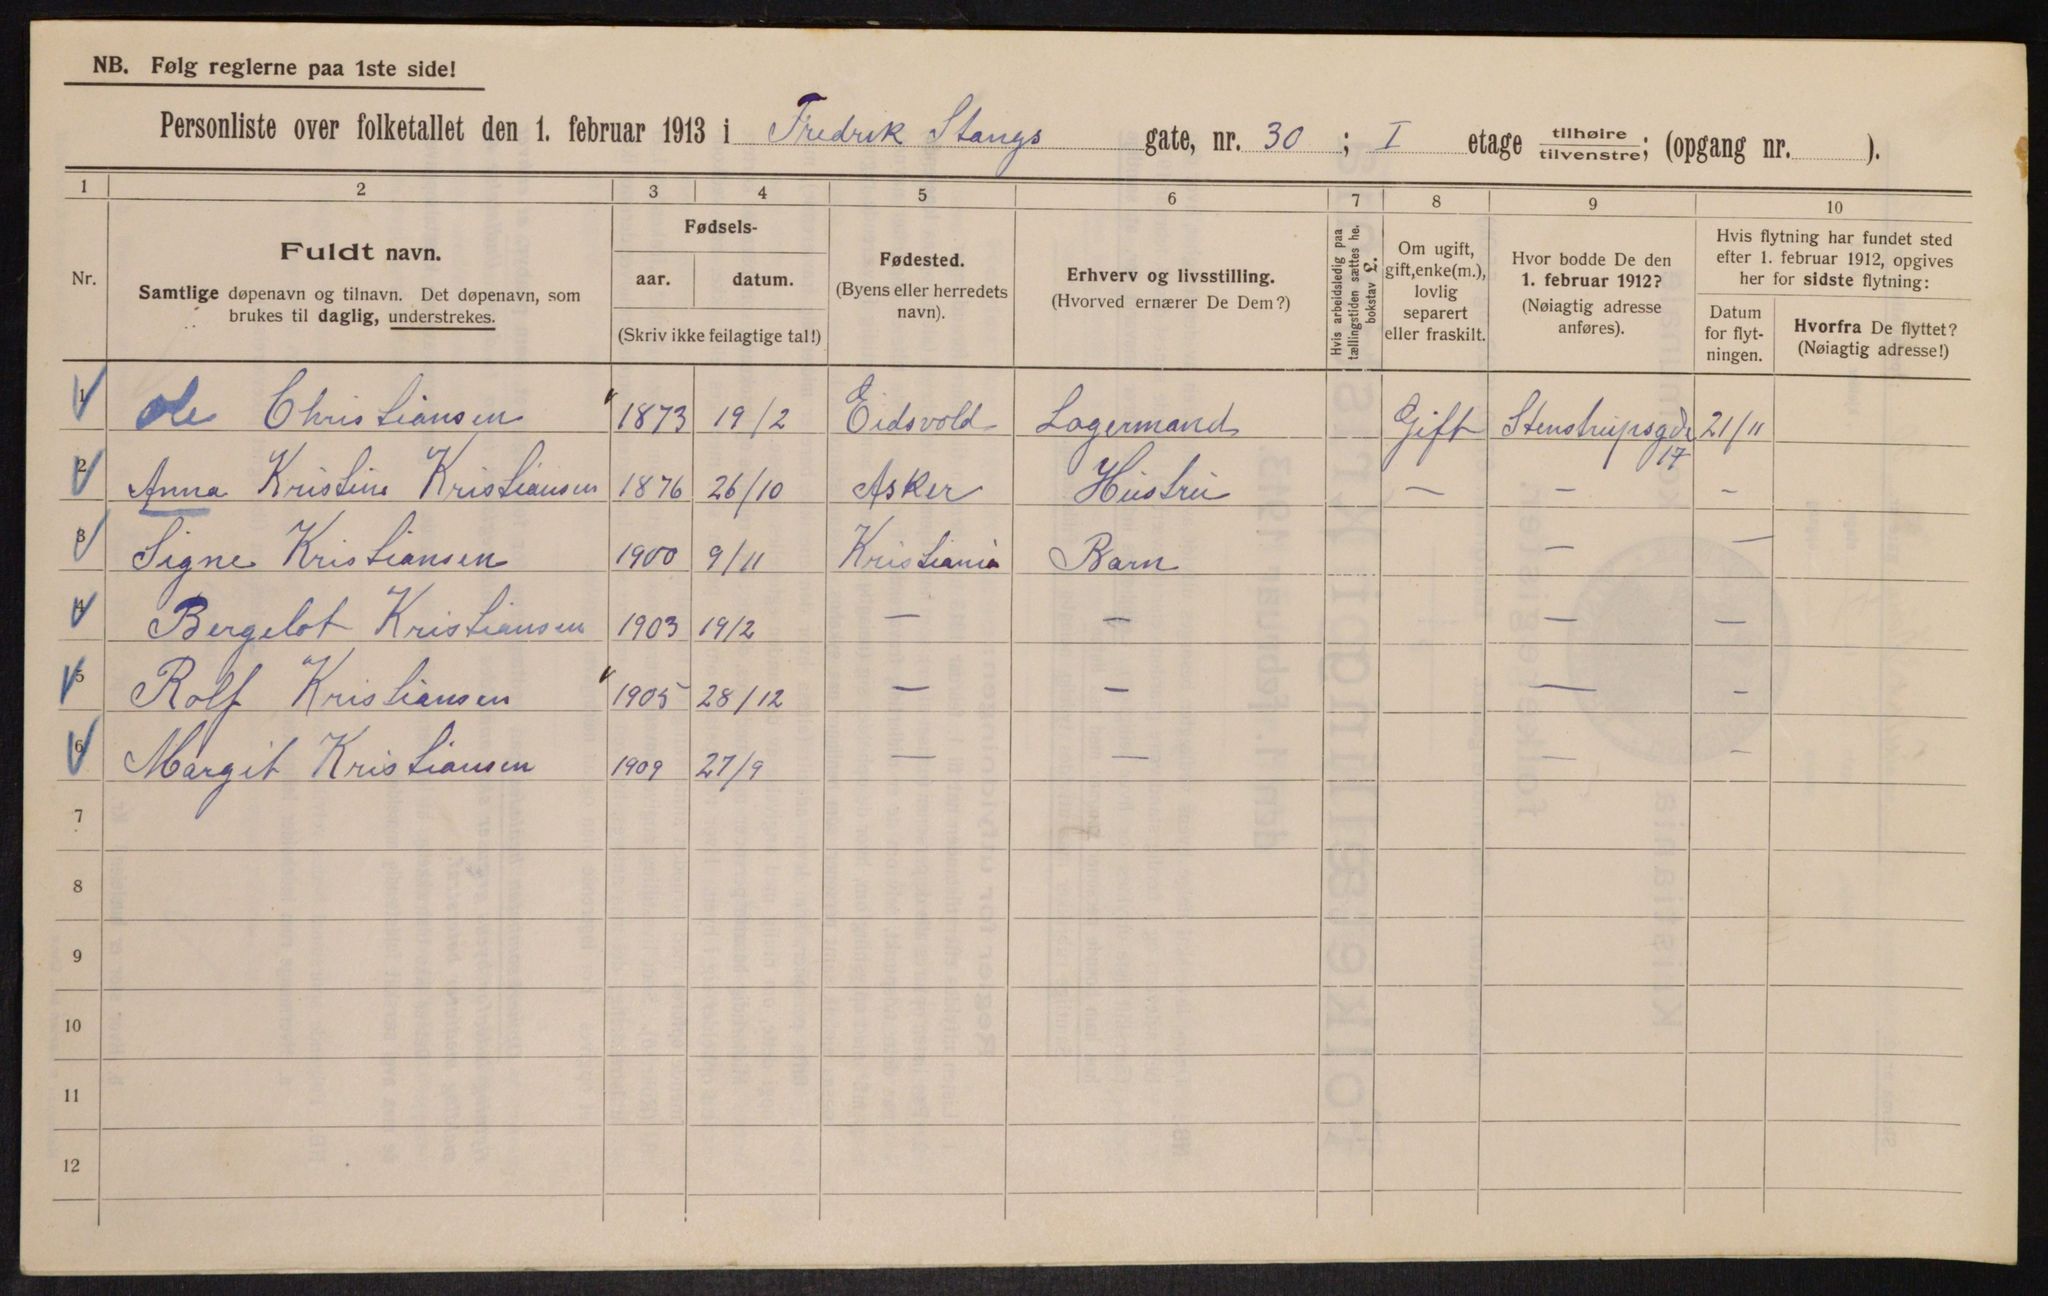 NB. Følg reglerne paa 1ste side!
Personliste over folketallet den 1. februar 1913 i Fredrik Stangs gate, nr. 30 ; I etage tilhøire/tilvenstre; (opgang nr. ).
1 2 3 4 5 6 7 8 9 10
Nr.
Fuldt navn.
Samtlige døpenavn og tilnavn. Det døpenavn, som
brukes til daglig, understrekes.
Fødsels-
aar. datum.
(Skriv ikke feilagtige tal!)
Fødested.
(Byens eller herredets
navn).
Erhverv og livsstilling.
(Hvorved ernærer De Dem?)
Hvis arbeidsledig paa
tællingstiden sættes he.
bokstav L.
Om ugift,
gift, enke(m.),
lovlig
separert
eller fraskilt.
Hvor bodde De den
1. februar 1912?
(Nøiagtig adresse
anføres).
Hvis flytning har fundet sted
efter 1. februar 1912, opgives
her for sidste flytning:
Datum
for flyt-
ningen.
Hvorfra De flyttet?
(Nøiagtig adresse!)
1 Ole Christiansen 1873 19/2 Eidsvold Lagermand Gift Stenstrupsgde 21/11
17
2 Anna Kristine Kristiansen 1876 26/10 Asker Hustru — — —
3 Signe Kristiansen 1900 9/11 Kristiania Barn — —
4 Bergelot Kristiansen 1903 19/2 — — — —
5 Rolf Kristiansen 1905 28/12 — — — —
6 Margit Kristiansen 1909 27/9 — — — —
7
8
9
10
11
12